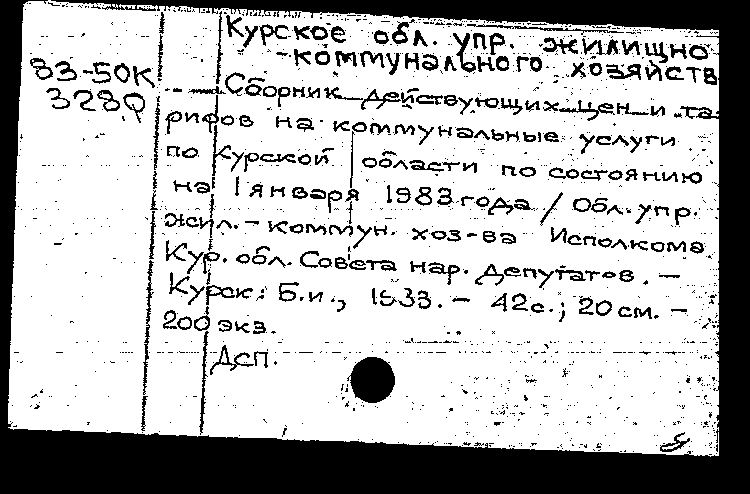 Курское обл. упр. жилищно
-коммунального хозяйств
83-50к
3280
Сборник действующих цен и та
рифов на коммунальные услуги
по Курской области по состоянию
на 1 января 1983 года / Обл. упр.
жил.-коммун. хоз-ва Исполкома
Кур. обл. Совета нар. депутатов. —
Курск: Б.и., 1983. — 42с.; 20 см. —
200 экз.
ДСП.